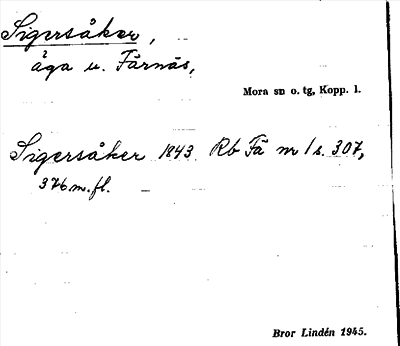 Sigersåker,
åga u. Färnäs,
Mora sn o. tg, Kopp. l.
Sigersåker 1843 Rb Fä m 1 s. 307,
376 m.fl.
Bror Lindén 1945.